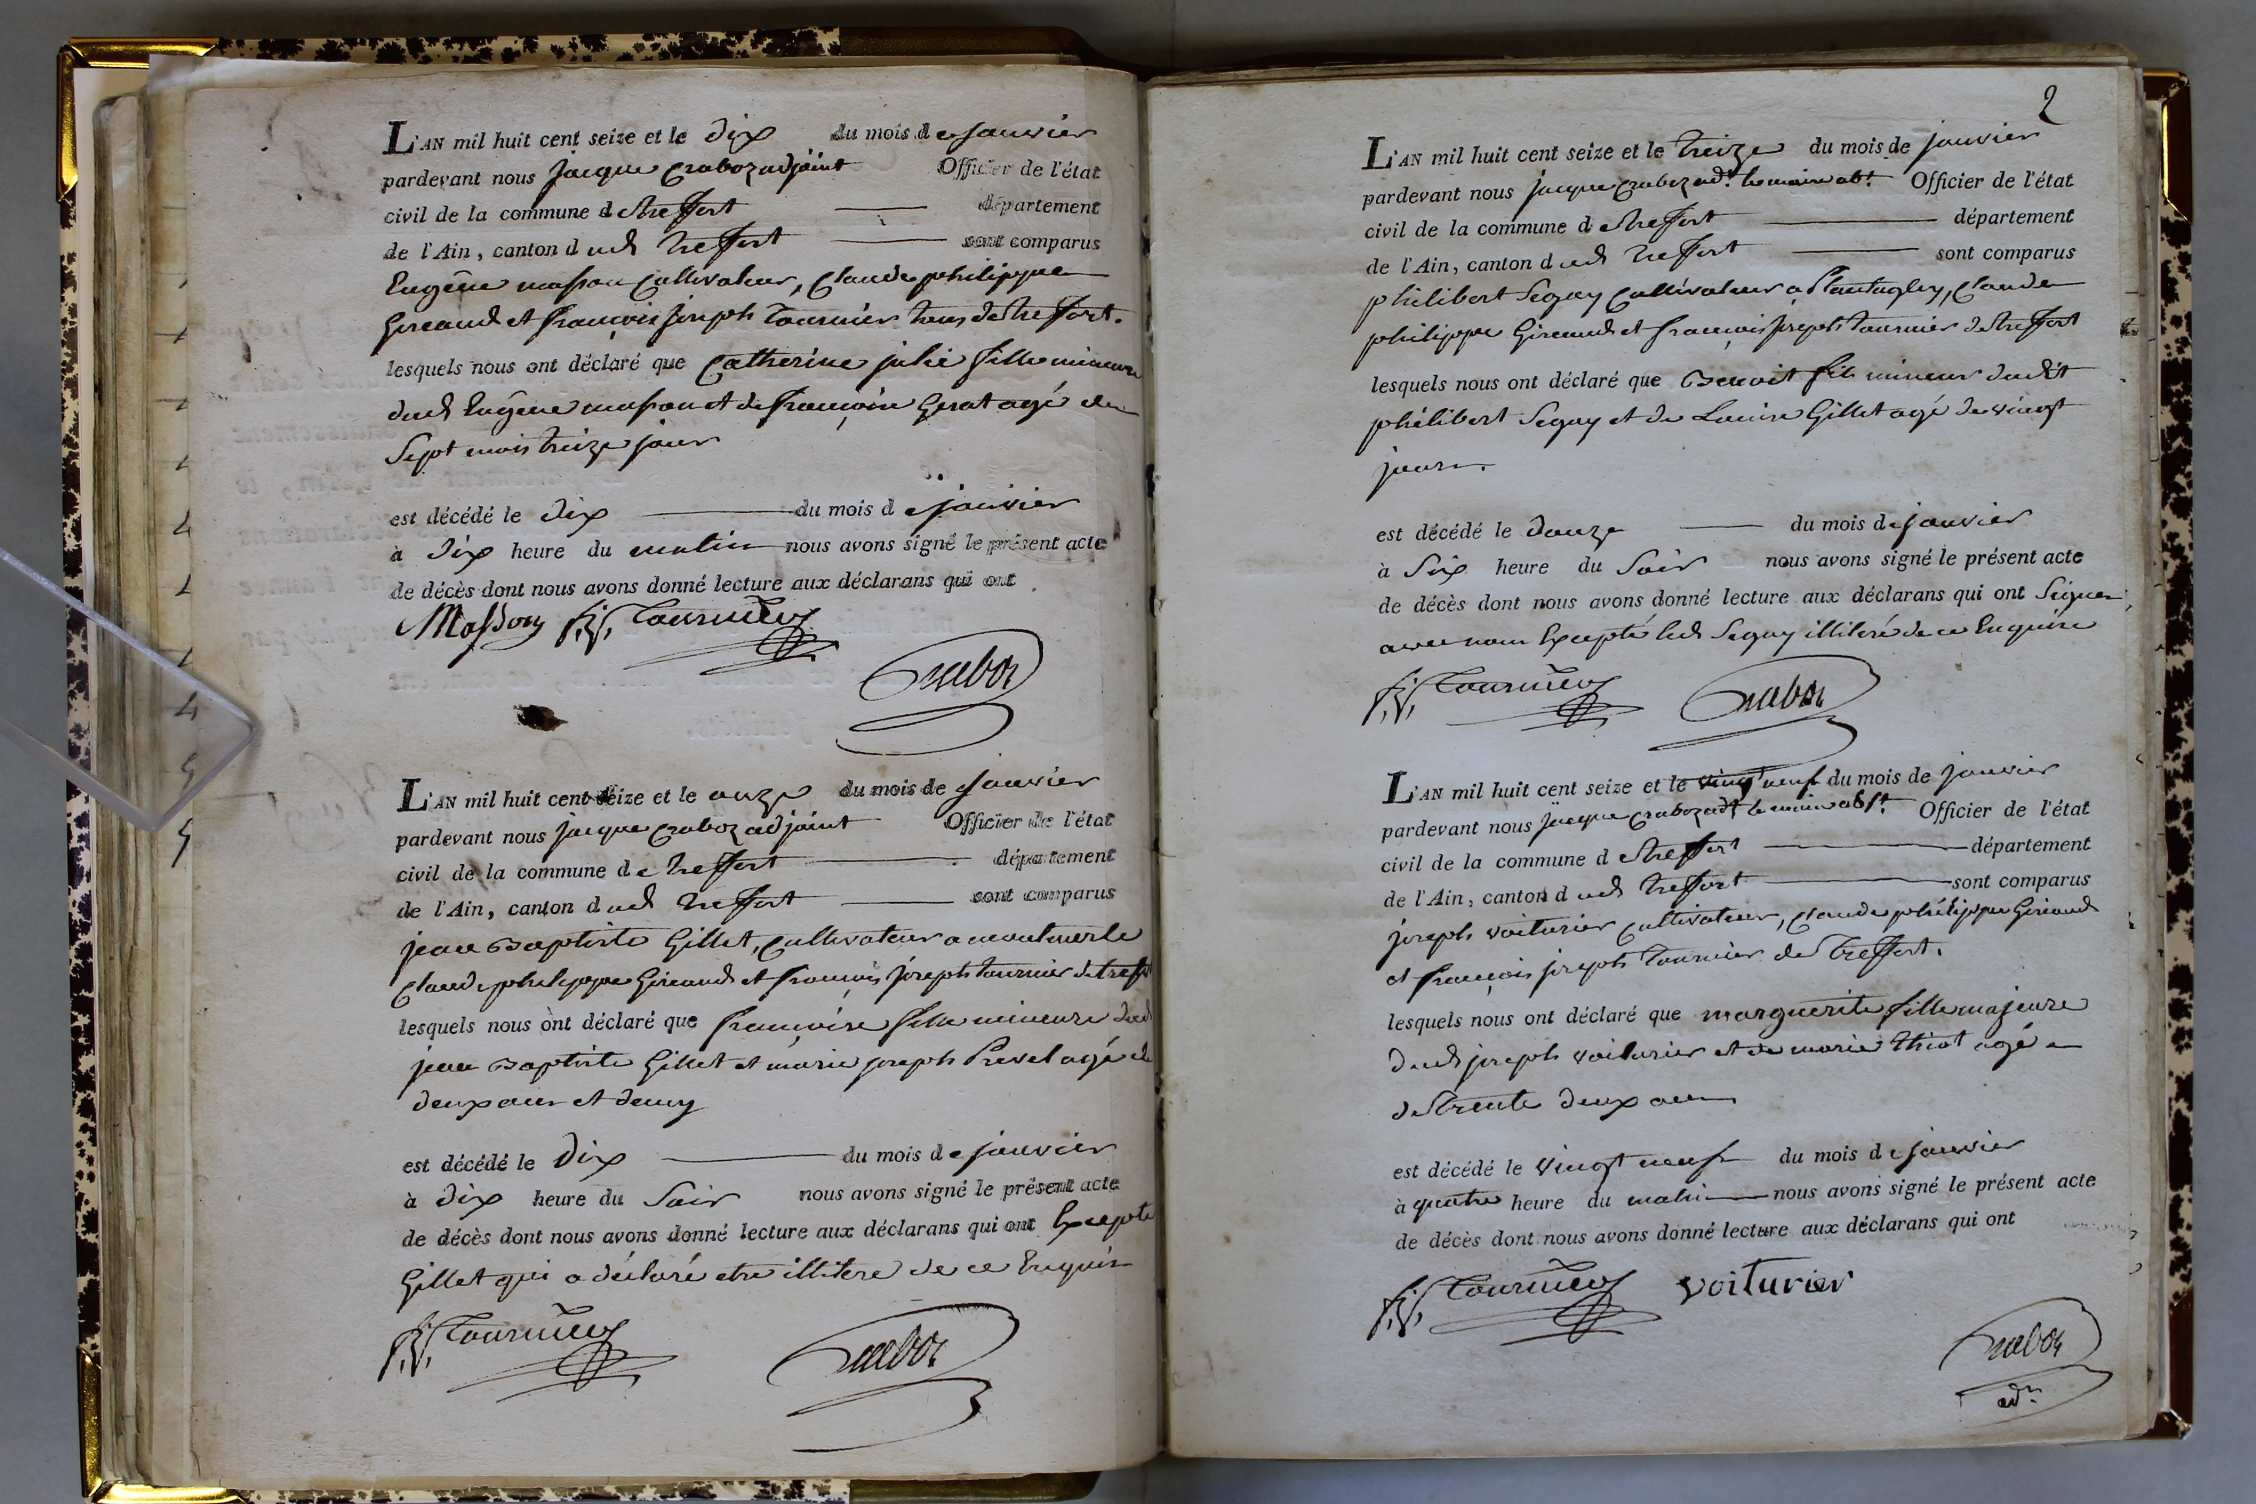 L'AN mil huit cent seize et le dix du mois de janvier
pardevant nous jacque Craboz adjoint Officier de l'état
civil de la commune de treffort département
de l'Ain, canton dud treffort sont comparus
Eugêne masson Cultivateur, Claude philippe
Gireaud et françois joseph tournier tous de treffort.
lesquels nous ont déclaré que Catherine julie fille mineure
dud Eugêne masson et de françoise Gerat agé de
Sept mois treize jour
est décédé le dix du mois de janvier
à dix heure du matin nous avons signé le présent acte
de décès dont nous avons donné lecture aux déclarans qui ont
Masson f.j. Tournier
Craboz
L'AN mil huit cent seize et le onze du mois de janvier
pardevant nous jacque Craboz adjoint Officier de l'état
civil de la commune de treffort département
de l'Ain, canton dud treffort sont comparus
jean Baptiste Gillet, Cultivateur a montmerle
Claude philippe Gireaud et françois joseph tournier de treffort
lesquels nous ont déclaré que françoise fille mineure dud
jean Baptiste Gillet et marie joseph Prevel agé de
deux ans et demy
est décédé le dix du mois de janvier
à dix heure du Soir nous avons signé le présent acte
de décès dont nous avons donné lecture aux déclarans qui ont Excepté
Gillet qui a déclaré etre illitere de ce Enquis
f.j. Tournier Craboz
2
L'AN mil huit cent seize et le treize du mois de janvier
pardevant nous jacque Craboz adt le maire abt Officier de l'état
civil de la commune de treffort département
de l'Ain, canton dud treffort sont comparus
philibert Seguy Cultivateur a Plantagley, Claude
philippe Gireaud et françois joseph tournier de treffort
lesquels nous ont déclaré que Benoit fils mineur dudit
philibert Seguy et de Louise Gillet agé de vingt
jours.
est décédé le douze du mois de janvier
à Six heure du Soir nous avons signé le présent acte
de décès dont nous avons donné lecture aux déclarans qui ont Signer
avec nous Excepté led Seguy illiteré de ce Enquire
f.j. Tournier Craboz
L'AN mil huit cent seize et le vingt neuf du mois de janvier
pardevant nous jacque Craboz adt le maire abst Officier de l'état
civil de la commune de treffort département
de l'Ain, canton dud treffort sont comparus
joseph voiturier Cultivateur, Claude philippe Gireaud
et françois joseph tournier de Treffort.
lesquels nous ont déclaré que marguerite fille majeure
dud joseph voiturier et de marie thiot agé
de trente deux ans
est décédé le vingt neuf du mois de janvier
à quatre heure du matin nous avons signé le présent acte
de décès dont nous avons donné lecture aux déclarans qui ont
f.j. Tournier voiturier
Craboz
adt